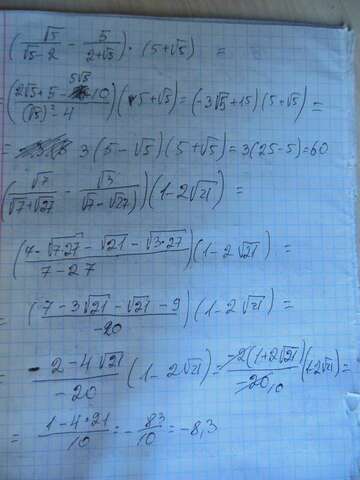 (√5/(√5-2) - 5/(2+√5)) · (5+√5) =
= ((2√5+5-5√5+10)/((√5)²-4)) (5+√5) = (-3√5+15)(5+√5) =
= 3(5-√5)(5+√5) = 3(25-5) = 60
(√7/(√7+√27) - √3/(√7-√27)) (1-2√21) =
((7-√7·27-√21-√3·27)/(7-27)) (1-2√21) =
= ((7-3√21-√21-9)/(-20)) (1-2√21) =
= (-2-4√21)/(-20) (1-2√21) = (-2(1+2√21))/(-20) 10 (1-2√21) =
= (1-4·21)/10 = -83/10 = -8,3